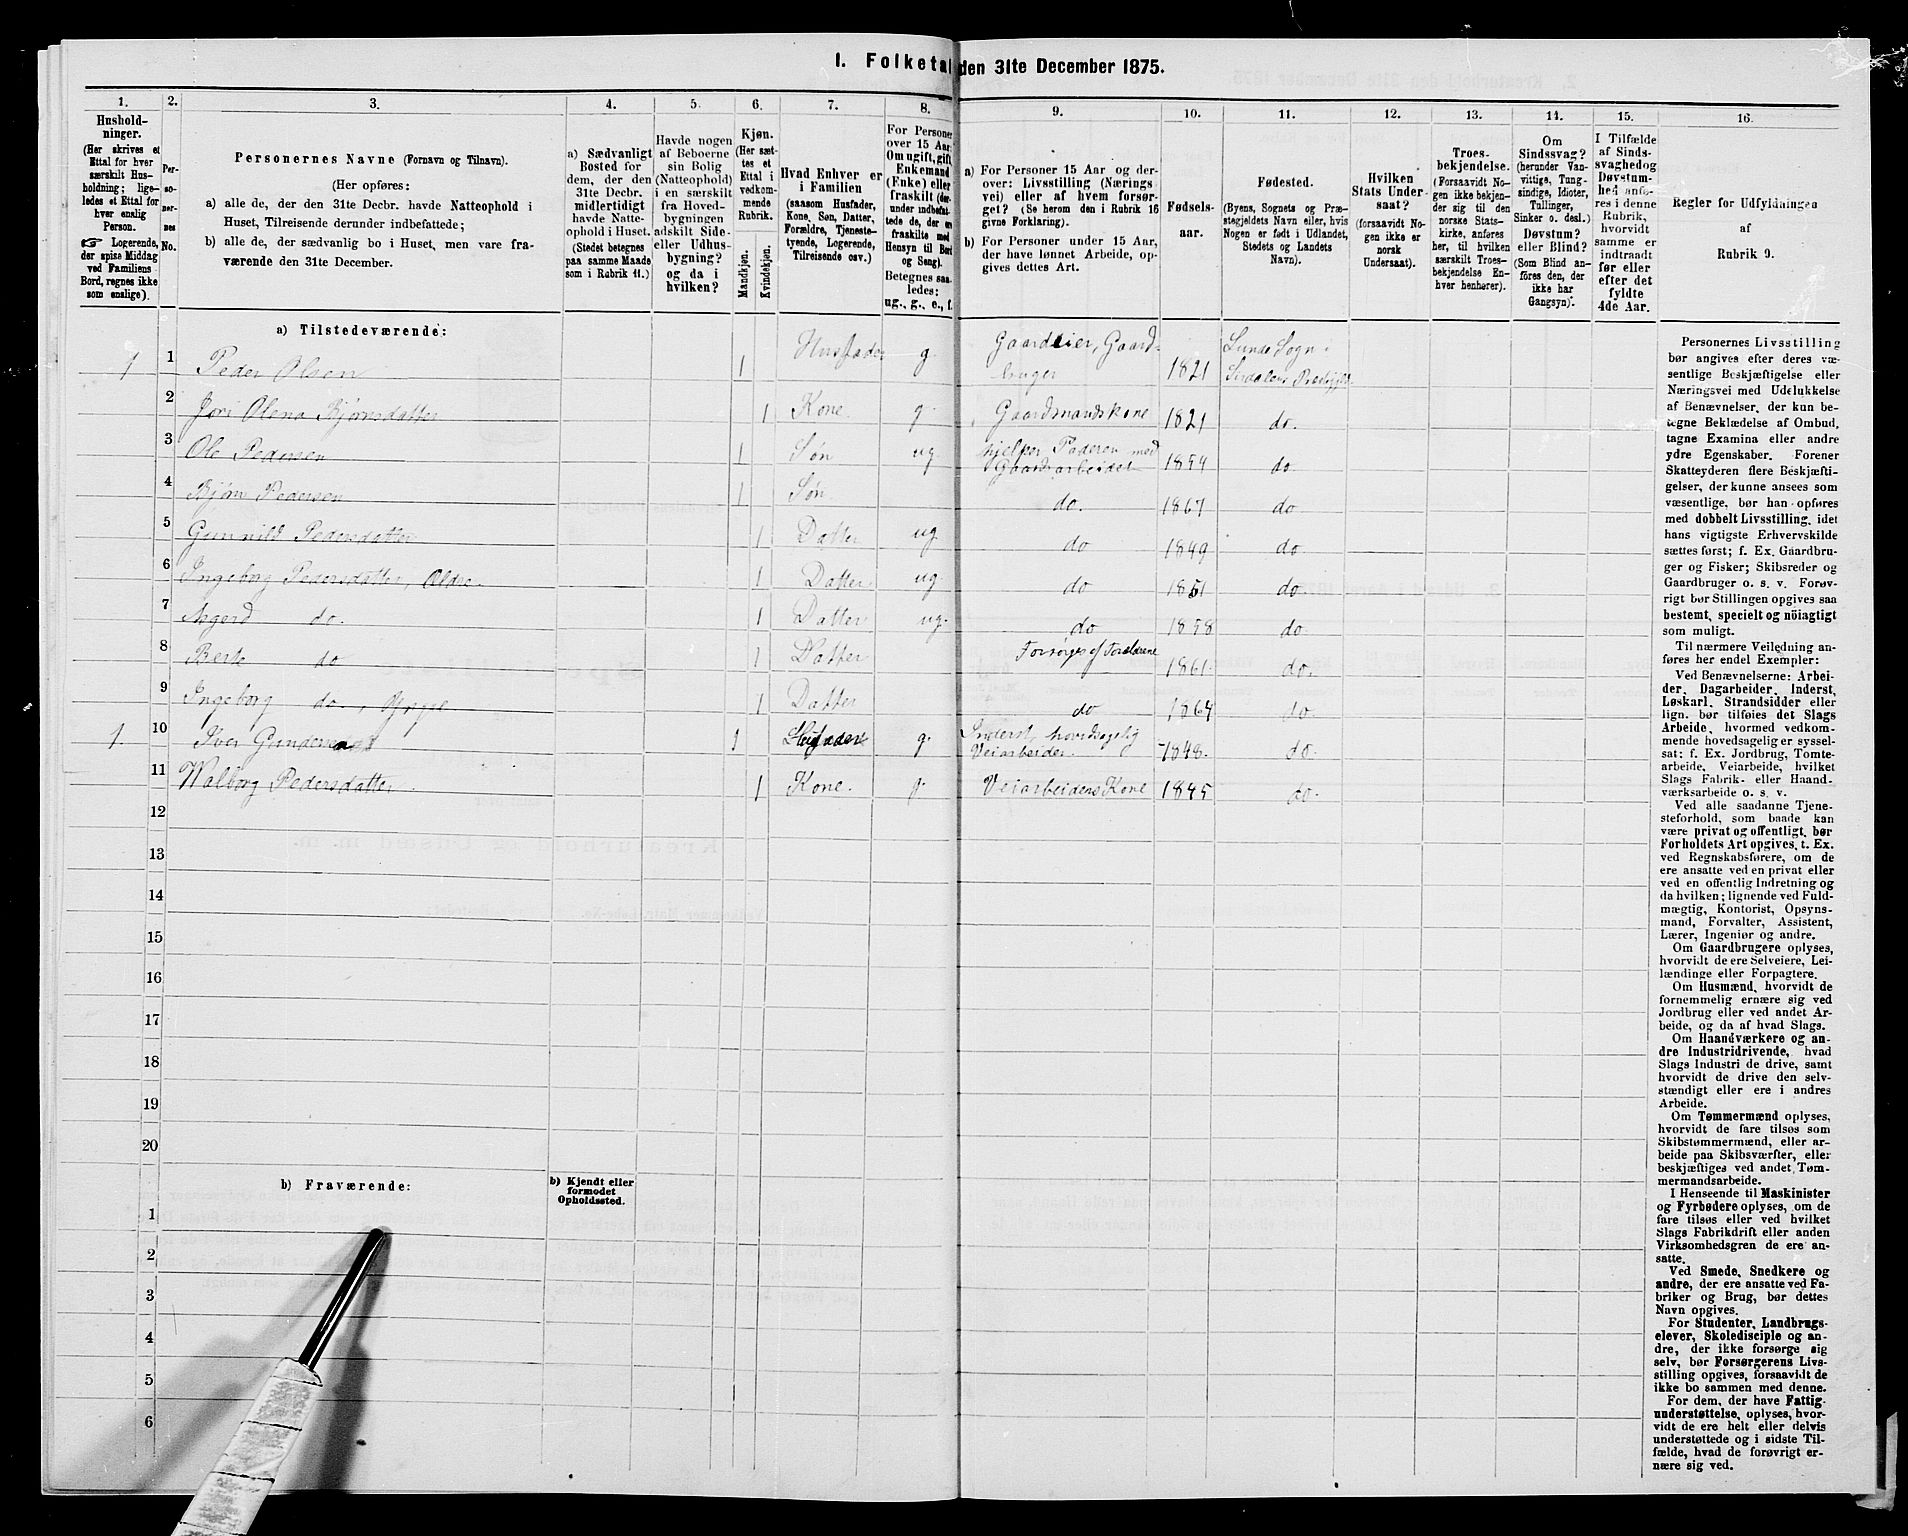 1. Folketal den 31te December 1875.
1.
Hushold-
ninger.
(Her skrives et
Ettal for hver
særskilt Hus-
holdning; lige-
ledes et Ettal for
hver enslig
Person.
☞ Logerende,
der spise Middag
ved Familiens
Bord, regnes ikke
som enslige).
2.
Per-
so-
ner-
nes
No.
3.
Personernes Navne (Fornavn og Tilnavn).
(Her opføres:
a) alle de, der den 31te Decbr. havde Natteophold i
Huset, Tilreisende derunder indbefattede;
b) alle de, der sædvanlig bo i Huset, men vare fra-
værende den 31te December.
4.
a) Sædvanligt
Bosted for
dem, der den
31te Decbr.
midlertidigt
havde Natte-
ophold i Huset.
(Stedet betegnes
paa samme Maade
som i Rubrik 11.)
5.
Havde nogen
af Beboerne
sin Bolig
(Natteophold)
i en særskilt
fra Hoved-
bygningen
adskilt Side-
eller Udhus-
bygning?
og da i
hvilken?
6.
Kjøn.
(Her sæt-
tes et
Ettal i
vedkom-
mende
Rubrik.
Mandkjøn.
Kvindekjøn.
7.
Hvad Enhver er
i Familien
(saasom Husfader,
Kone, Søn, Datter,
Forældre, Tjeneste-
tyende, Logerende,
Tilreisende osv.)
8.
For Personer
over 15 Aar:
Om ugift, gift,
Enkemand
(Enke) eller
fraskilt (der-
under indbefat-
tede de, der ere
fraskilte med
Hensyn til Bord
og Seng).
Betegnes saa-
ledes:
ug., g., e., f.
9.
a) For Personer 15 Aar og der-
over: Livsstilling (Nærings-
vei) eller af hvem forsør-
get? (Se herom den i Rubrik 16
givne Forklaring).
b) For Personer under 15 Aar,
der have lønnet Arbeide, op-
gives dettes Art.
10.
Fødsels-
aar.
11.
Fødested.
(Byens, Sognets og Præ-
stegjeldets Navn eller, hvis
Nogen er født i Udlandet,
Stedets og Landets
Navn).
12.
Hvilken
Stats Under-
saat?
(forsaavidt No-
gen ikke er
norsk
Undersaat).
13.
Troes-
bekjendelse.
(Forsaavidt No-
gen ikke bekjen-
der sig til den
norske Stats-
kirke, anføres
her, til hvilken
særskilt Troes-
bekjendelse En-
hver henhører).
14.
Om
Sindssvag?
(herunder Van-
vittige, Tung-
sindige, Idioter,
Tullinger,
Sinker o. desl.)
Døvstum?
eller Blind?
(Som Blind an-
føres den, der
ikke har
Gangsyn).
15.
I Tilfælde
af Sinds-
svaghed og
Døvstum-
hed anfø-
res i denne
Rubrik,
hvorvidt
samme er
indtraadt
før eller
efter det
fyldte
4de Aar.
16.
Regler for Udfyldningen
af
Rubrik 9.
a) Tilstedeværende:
1 1 Peder Olsen 1 Husfader g. Gaardeier, Gaard-
bruger 1821 Lunde Sogn i
Sirdalens Præstegjeld
2 Jøri Olena Bjørnsdatter 1 Kone. g. Gaardmandskone 1821 do.
3 Ole Pedersen 1 Søn ug. hjelper Faderen med
Gaardsarbeidet 1854 do
4 Bjørn Pedersen 1 Søn. do. 1867 do
5 Gunnild Pedersdatter 1 Datter ug. do 1849 do.
6 Ingeborg Pedersdatter, Ældre 1 Datter ug. do 1851 do
7 Asgerd do. 1 Datter ug. do 1858 do.
8 Berte do 1 Datter Forsørges af Forældrene 1861. do.
9 Ingeborg do., Yngre 1 Datter do 1864 do.
1. 10 Iver Gundersen 1 Husfader g. Inderst, hovedsagelig
Veiarbeider. 1848. do.
11 Walborg Pedersdatter. 1 Kone. g. Veiarbeiders Kone 1845 do.
12
13
14
15
16
17
18
19
20
b) Fraværende:
b) Kjendt eller
formodet
Opholdssted.
1
2
3
4
5
6
Personernes Livsstilling
bør angives efter deres væ-
sentlige Beskjæftigelse eller
Næringsvei med Udelukkelse
af Benævnelser, der kun be-
tegne Beklædelse af Ombud,
tagne Examina eller andre
ydre Egenskaber. Forener
Skatteyderen flere Beskjæfti-
gelser, der kunne ansees som
væsentlige, bør han opføres
med dobbelt Livsstilling, idet
hans vigtigste Erhvervskilde
sættes først; f. Ex. Gaardbru-
ger og Fisker; Skibsreder og
Gaardbruger o. s. v. Forøv-
rigt bør Stillingen opgives saa
bestemt, specielt og nöiagtigt
som muligt.
Til nærmere Veiledning an-
føres her endel Exempler:
Ved Benævnelserne: Arbei-
der, Dagarbeider, Inderst,
Løskarl, Strandsidder eller
lign. bør tilføies det Slags
Arbeide, hvormed vedkom-
mende hovedsagelig er syssel-
sat; f. Ex. Jordbrug, Tomte-
arbeide, Veiarbeide, hvilket
Slags Fabrik- eller Haand-
værksarbeide o. s. v.
Ved alle saadanne Tjene-
steforhold, som baade kan
være privat og offentligt, bør
Forholdets Art opgives, t. Ex.
ved Regnskabsførere, om de
ere ansatte ved en privat eller
ved en offentlig Indretning og
da hvilken; lignende ved Fuld-
mægtig, Kontorist, Opsyns-
mand, Forvalter, Assistent,
Lærer, Ingeniør og andre.
Om Gaardbrugere oplyses,
hvorvidt de ere Selveiere, Lei-
lændinge eller Forpagtere.
Om Husmænd, hvorvidt de
fornemmelig ernære sig ved
Jordbrug eller ved andet Ar-
beide, og da af hvad Slags.
Om Haandværkere og an-
dre Industridrivende, hvad
Slags Industri de drive, samt
hvorvidt de drive den selv-
stændigt eller ere i andres
Arbeide.
Om Tømmermænd oplyses,
hvorvidt de fare tilsøs som
Skibstømmermænd, eller ar-
beide paa Skibsværfter, eller
beskjæftiges ved andet Tøm-
mermandsarbeide.
I Henseende til Maskinister
og Fyrbødere oplyses, om de
fare tilsøs eller ved hvilket
Slags Fabrikdrift eller anden
Virksomhedsgren de ere an-
satte.
Ved Smede, Snedkere og
andre, der ere ansatte ved Fa-
briker og Brug, bør dettes
Navn opgives.
For Studenter, Landbrugs-
elever, Skoledisciple og an-
dre, der ikke forsørge sig
selv, bør Forsørgerens Livs-
stilling opgives, forsaavidt de
ikke bo sammen med denne.
For dem, der have Fattig-
understøttelse, oplyses, hvor-
vidt de ere helt eller delvis
understøttede og i sidste Til-
fælde, hvad de forøvrigt er-
nære sig ved.